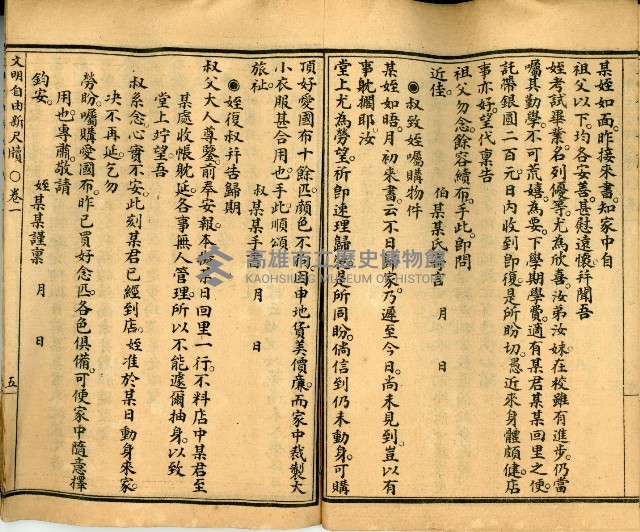 某姪如面。昨接來書。知家中自
祖父以下。均各安善。甚慰遠懷。幷聞吾
姪考試畢業。名列優等。尤為欣喜。汝弟汝妹。在校雖有進步。仍當
囑其勤學。不可荒嬉為要。下學期學費。適有某君某某回里之便。
託帶銀圓二百元。日內收到即復。是所盼切。愚近來身體頗健。店
事亦好。望代稟告
祖父勿念。餘容續布。手此。即問
近佳。　伯某某氏言　月　日
◉叔致姪囑購物件
某姪如晤。月初來書。云不日歸家。乃遲至今日。尚未見到。豈以有
事躭擱耶。汝
堂上尤為勞望。祈即速理歸是所同盼。倘信到仍未動身。可購
頂好愛國布十餘匹。顏色不因申地貨美價廉。而家中裁製大
小衣服甚合用也。手此。順頌
旅祉。　叔某某手月　日
◉姪復叔幷告歸期
叔父大人尊鑒。前奉安報。本某日回里一行。不料店中某君至
某處收帳躭延。各事無人管理。所以不能遽爾抽身。以致
堂上竚望。吾
叔系念。心實不安。此刻某君已經到店。姪准於某日動身來家。
决不再延。乞勿
勞盼。囑購愛國布。昨已買好念匹。各色俱備。可便家中隨意擇
用也。專肅。敬請
鈞安。　姪某某謹稟　月　日
文明自由新尺牘〇卷一　五
高雄市立歷史博物館
KAOHSIUNG MUSEUM OF HISTORY